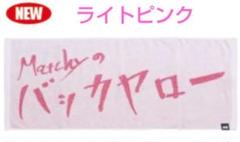 NEW ライトピンク
Matchyの
バッカヤロー